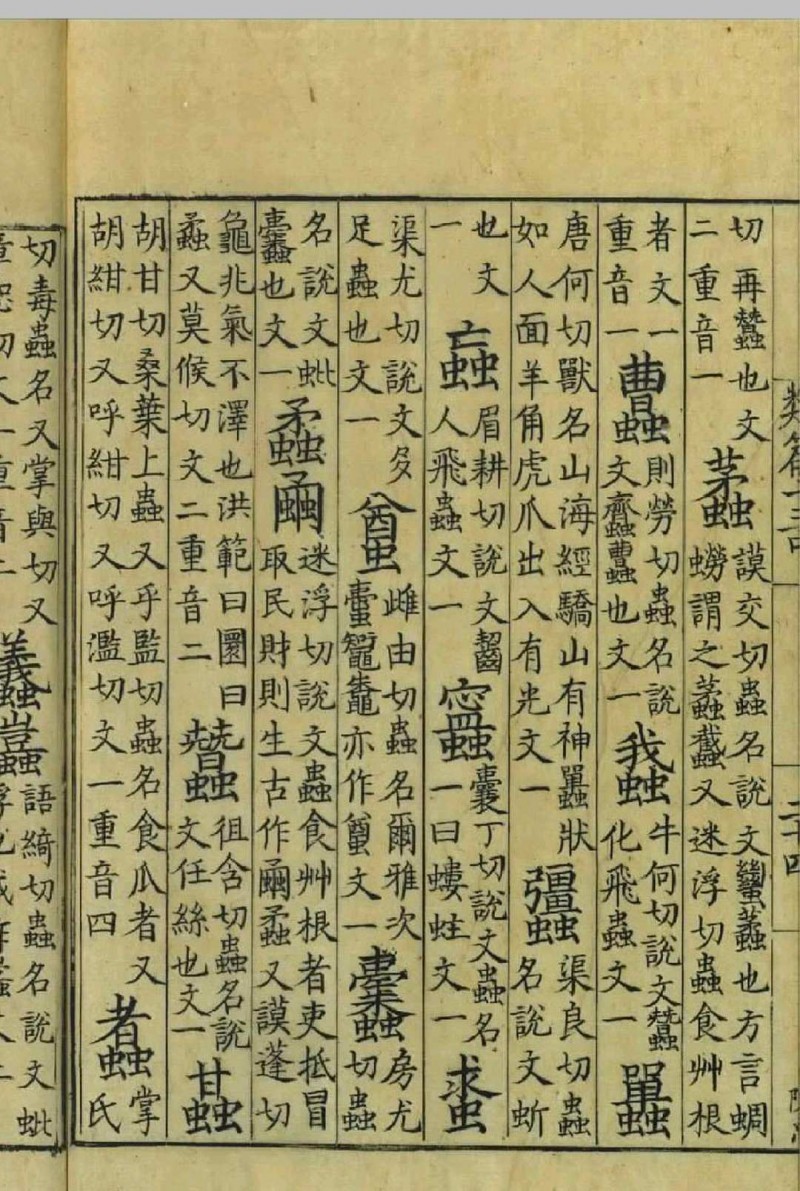 類篇十三
二十四
切再蠶也文
二重音一
謨交切蟲名說文蠿蟊也方言蜩
蟧謂之蠽又迷浮切蟲食艸根
者文一
重音一
則勞切蟲名說
文也文一
牛何切說文蠶
化飛蟲文一
唐何切獸名山海經驕山有神狀
如人面羊角虎爪出入有光文一
渠良切蟲
名說文蚚
也文
一
蝱
眉耕切說文齧
人飛蟲文一
囊丁切說文蟲名
一曰螻蛄文一
渠尤切說文多
足蟲也文一
雌由切蟲名爾雅次
鼅鼄亦作文一
房尤
切蟲
名說文蚍
也文一
蟊
迷浮切說文蟲食艸根者吏抵冒
取民財則生古作蟊又謨蓬切
龜兆氣不澤也洪範曰圛曰
蟊又莫候切文二重音二
蠶
徂含切蟲名說
文任絲也文一
胡甘切桑葉上蟲又乎監切蟲名食瓜者又
胡紺切又呼紺切又呼濫切文一重音四
掌
氏
切毒蟲名又掌與切又
語綺切蟲名說文蚍